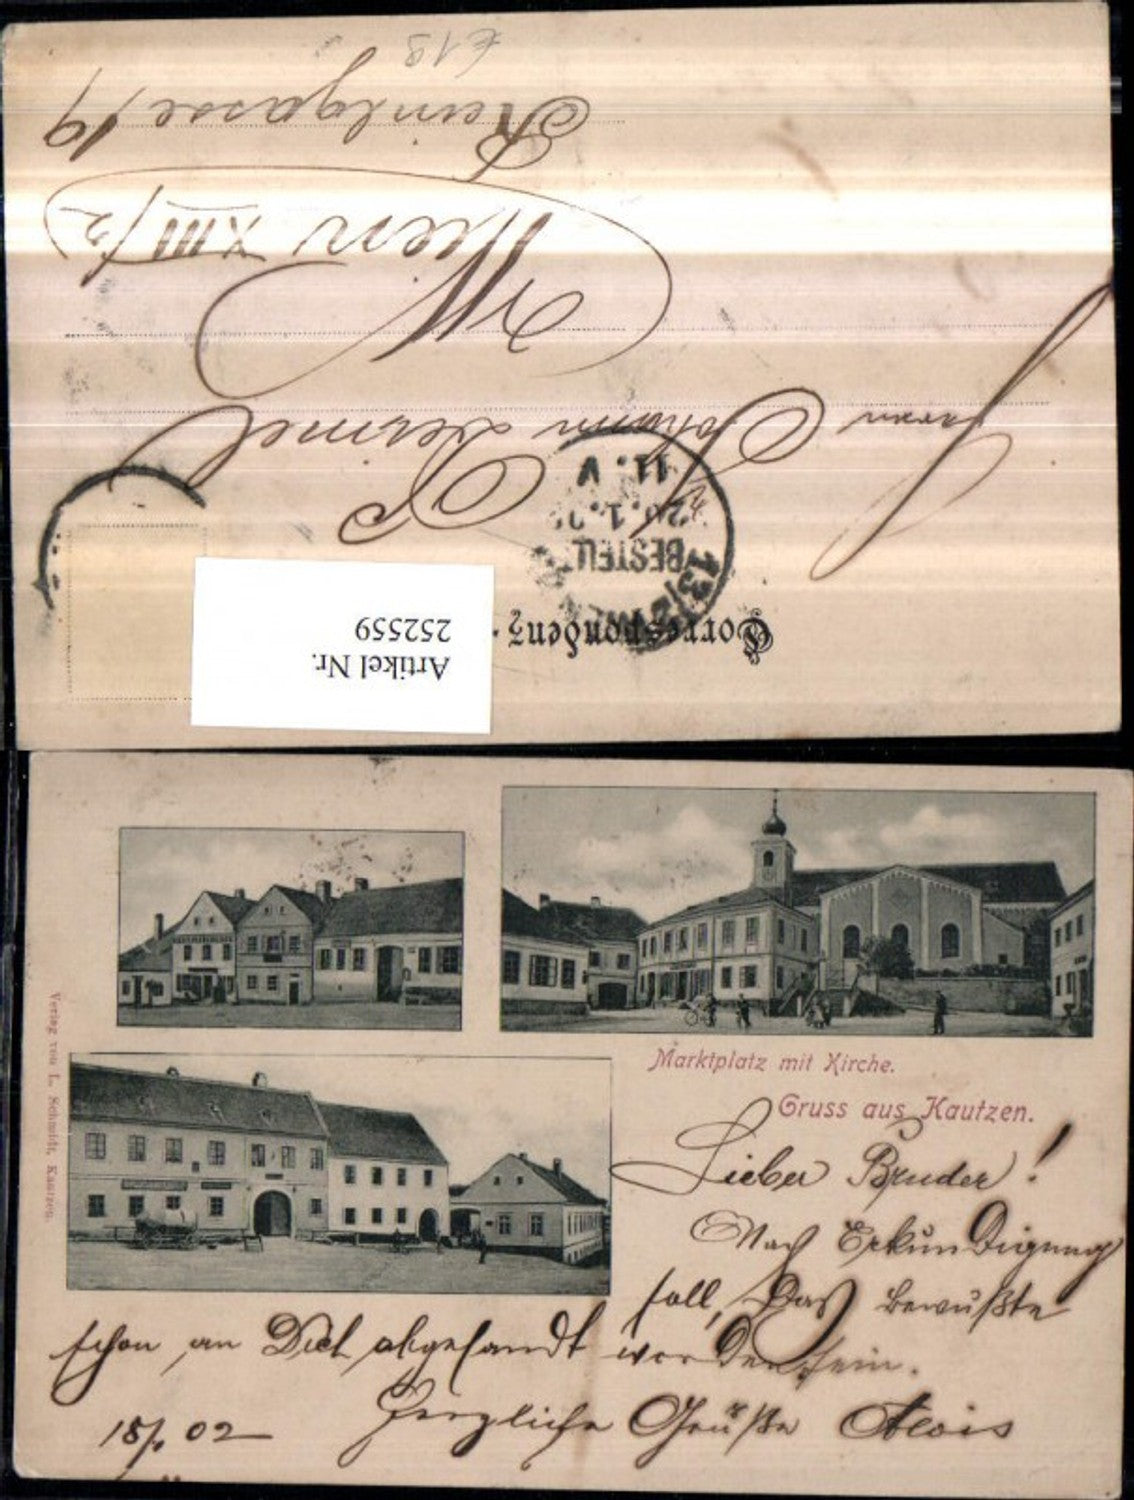 Correspondenz
13/2 WIEN
BESTELLT
11. V
Herrn
Johann
Wien XIII/2
19
€ 19
Artikel Nr.
252559
Marktplatz mit Kirche.
Gruss aus Kautzen.
Verlag von L. Schmidt, Kautzen.
Lieber Bruder!
Nach Erkundigung
soll, Das bewußte
schon an Dich abgesandt worden sein.
Herzliche Grüße Alois
18/1. 02